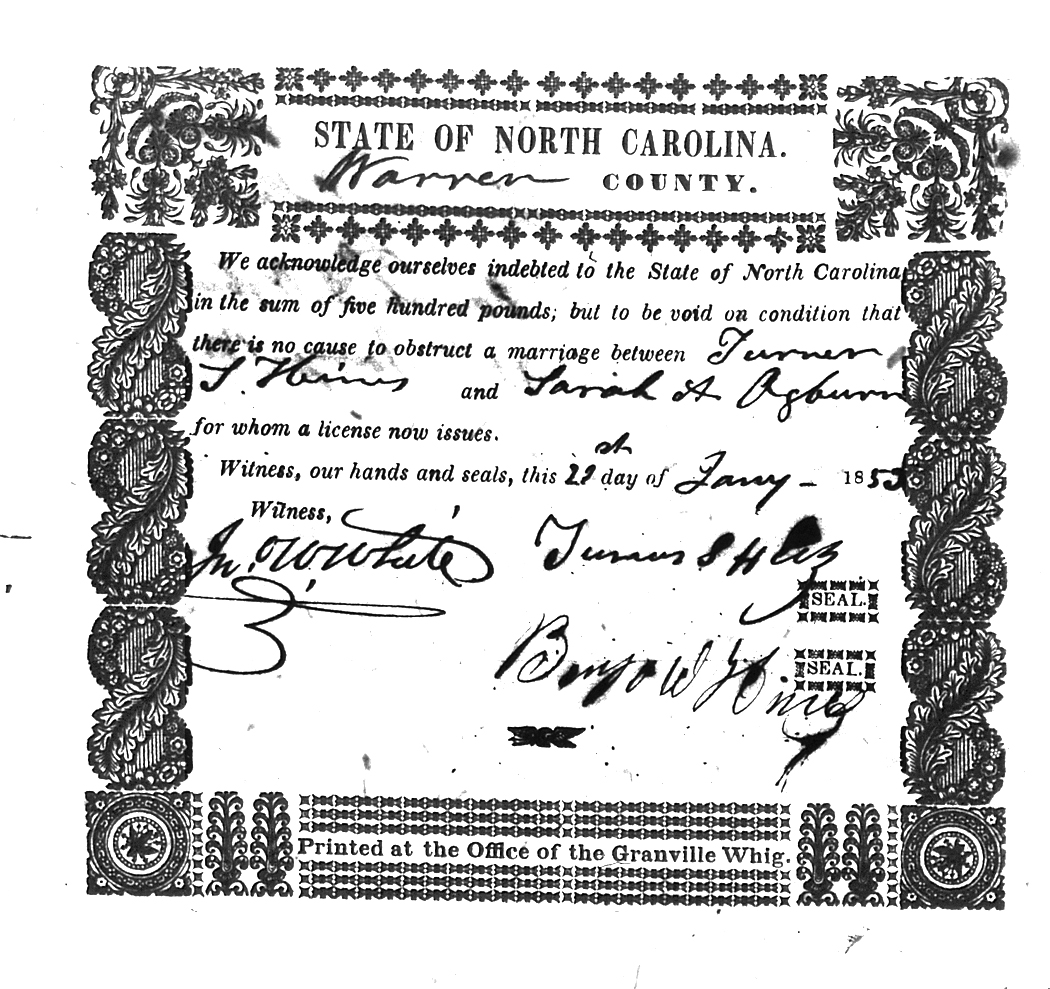 STATE OF NORTH CAROLINA.
Warren COUNTY.
We acknowledge ourselves indebted to the State of North Carolina
in the sum of five hundred pounds; but to be void on condition that
there is no cause to obstruct a marriage between Turner
S. Hines and Sarah A Ogburn
for whom a license now issues.
Witness, our hands and seals, this 21st day of Jany - 1853
Witness,
Jno. W White Turner S
SEAL.
Benja W Hines SEAL.
Printed at the Office of the Granville Whig.